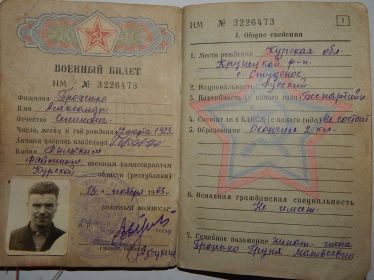 ВОЕННЫЙ БИЛЕТ
НМ № 3226473
Фамилия Проценко
Имя Александр
Отчество
Число, месяц и год рождения 1923.
Личная подпись владельца
Выдан
районным военным комиссариатом
Курской
области (республики)
18 ноября 1963 г.
Военный комиссар
НМ № 3226473
1
I. Общие сведения
1. Место рождения Курская обл.
р-н
с. Студенок
2. Национальность Русский
3. Партийность (с какого года) Беспартийн.
4. Состоит ли в ВЛКСМ (с какого года) Не состоит
5. Образование Окончил 2 кл.
6. Основная гражданская специальность
Не имеет
7. Семейное положение Женат - жена
Матвеевна